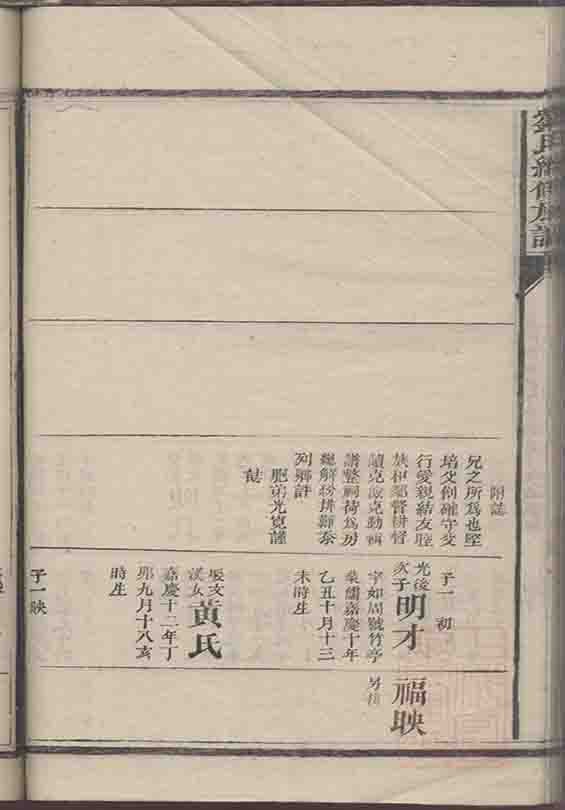 劉氏續修族譜
附誌
兄之所為也堅
培父創確守父
行愛親結友睦
族和鄰督耕督
讀克儉克勤輯
譜整祠荷為房
總解紛排難奈
列鄉評
胞弟光寬謹
誌
子一
光後
次子
明才
字如周號竹亭
業儒嘉慶十年
乙丑十月十三
未時生
配文
漢女
黃氏
嘉慶十二年丁
卯九月十八亥
時生
子一映
福映
另排